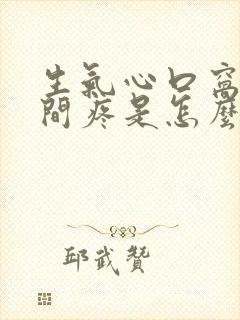 生氣心口窩
間疼是怎麼
邱武贊